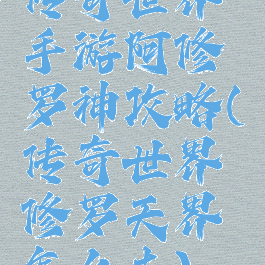 传奇世界
手游阿修
罗神攻略(
传奇世界
修罗天界
怎么走)